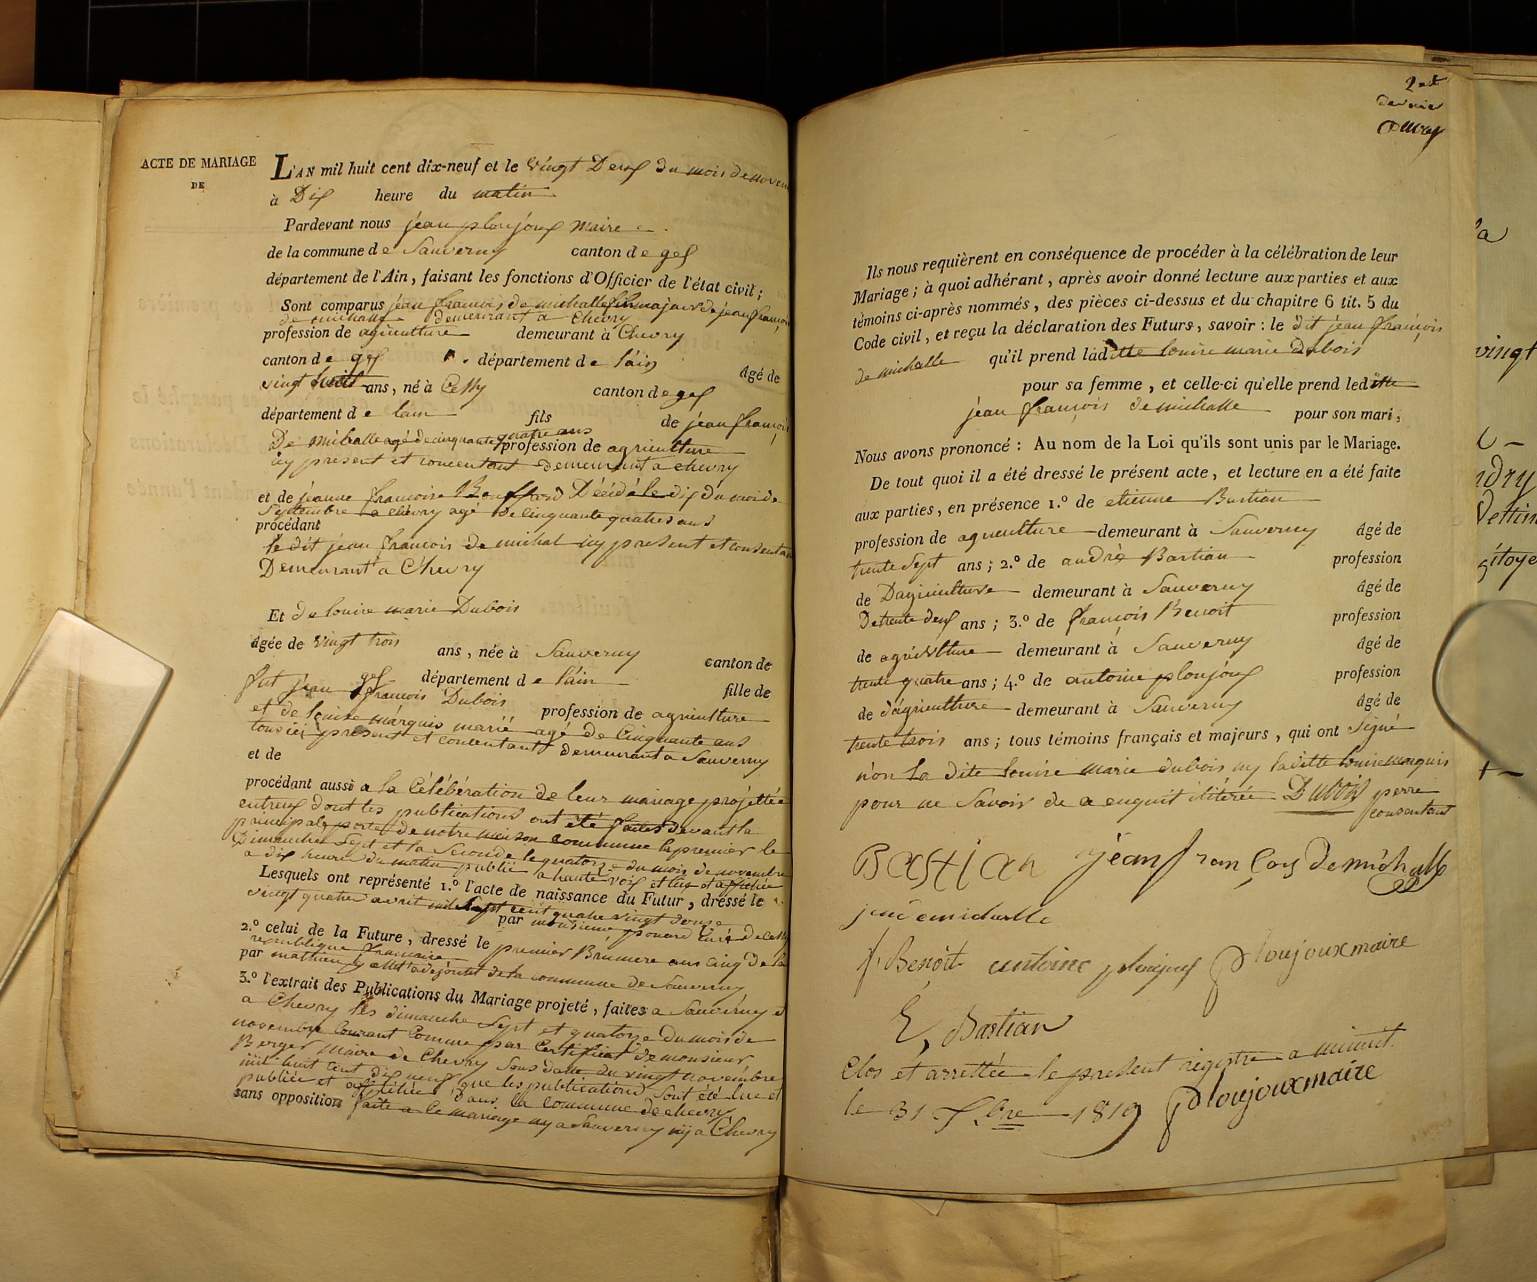 ACTE DE MARIAGE
DE
L'AN mil huit cent dix-neuf et le vingt Deux du mois de novem
à Dix heure du matin
Pardevant nous jean ploujoux maire
de la commune de Sauverny canton de gex
département de l'Ain, faisant les fonctions d'Officier de l'état civil;
Sont comparus jean françois de michalle fils majeur de jean françois
de michalle demeurant a Chevry
profession de agriculture demeurant à Chevry
canton de gex département de l'ain âgé de
vingt huit ans, né à Cessy canton de gex
département de lain fils de jean françois
De michalle agé de cinquante quatre ans profession de agriculture
icy present et concentant demeurant a chevry
et de jeanne francoise Décédé le dix du moi de
Septembre a chevry agé de cinquante quatres ans
procédant
le dit jean francois de michal icy present et consentan
Demeurant a Chevry
Et de louise marie Dubois
âgée de vingt trois ans, née à Sauverny canton de
gex département de l'ain fille de
fut jean francois Dubois profession de agriculture
et de louise marquis marié agé de Cinquante ans
tous ici present et concentant demeurant a Sauverny
et de
procédant aussi a la Célébération de leur mariage projettée
entreux dont les publications ont été faites devant la
principale porte de notre maison commune la premier le
Dimanche Sept et la Seconde le quatorze du mois de novembre
a dix heure du matin publié a haute voix et lue et affichée
Lesquels ont représenté 1.° l'acte de naissance du Futur, dréssé le
vingt quatre avril mil Sept cent quatre vingt donze
par monsieur curé de cessy
2.° celui de la Future, dressé le premier Brumere ans cinq de la
republique francaise
par mathieu adejoint de la commune de Sauverny
3.° l'extrait des Publications du Mariage projeté, faites a Sauverny et
a Chevry les dimanche Sept et quatorze du mois de
novembre Courant Comme par Certificat de monsieur
Berger Maire de Chevry Sous date du vingt novembre
mil huit cent dix neuf que les publications sont été lue et
publiée et affichée dans la commune de chevry
sans opposition faite a le mariage ny a Sauverny nij a Chevry
2 et
dernier
Ils nous requièrent en conséquence de procéder à la célébration de leur
Mariage; à quoi adhérant, après avoir donné lecture aux parties et aux
témoins ci-après nommés, des pièces ci-dessus et du chapitre 6 tit. 5 du
Code civil, et reçu la déclaration des Futurs, savoir: le dit jean françois
de michalle qu'il prend ladite louise marie Dubois
pour sa femme, et celle-ci qu'elle prend leditte
jean françois demichalle pour son mari;
Nous avons prononcé: Au nom de la Loi qu'ils sont unis par le Mariage.
De tout quoi il a été dressé le présent acte, et lecture en a été faite
aux parties, en présence 1.° de etienne Bastian
profession de agriculture demeurant à Sauverny âgé de
trente Sept ans; 2.° de andré Bastian profession
de Dagriculture demeurant à Sauverny âgé de
De trente deux ans; 3.° de françois Benoit profession
de agriculture demeurant à Sauverny âgé de
trente quatre ans; 4.° de antoine ploujoux profession
de d'agriculture demeurant à Sauverny âgé de
trente trois ans; tous témoins français et majeurs, qui ont signé
non la dite louise marie dubois ny laditte louise marquis
pour ne Savoir de a enquit ilitérée Dubois perre
consentant
BAStian jean françois demichalle
f. Benoit antoine ploujoux Ploujoux maire
E, Bastian
Clos et arrettée le present registre a minuit
le 31 Xbre 1819 Ploujoux maire